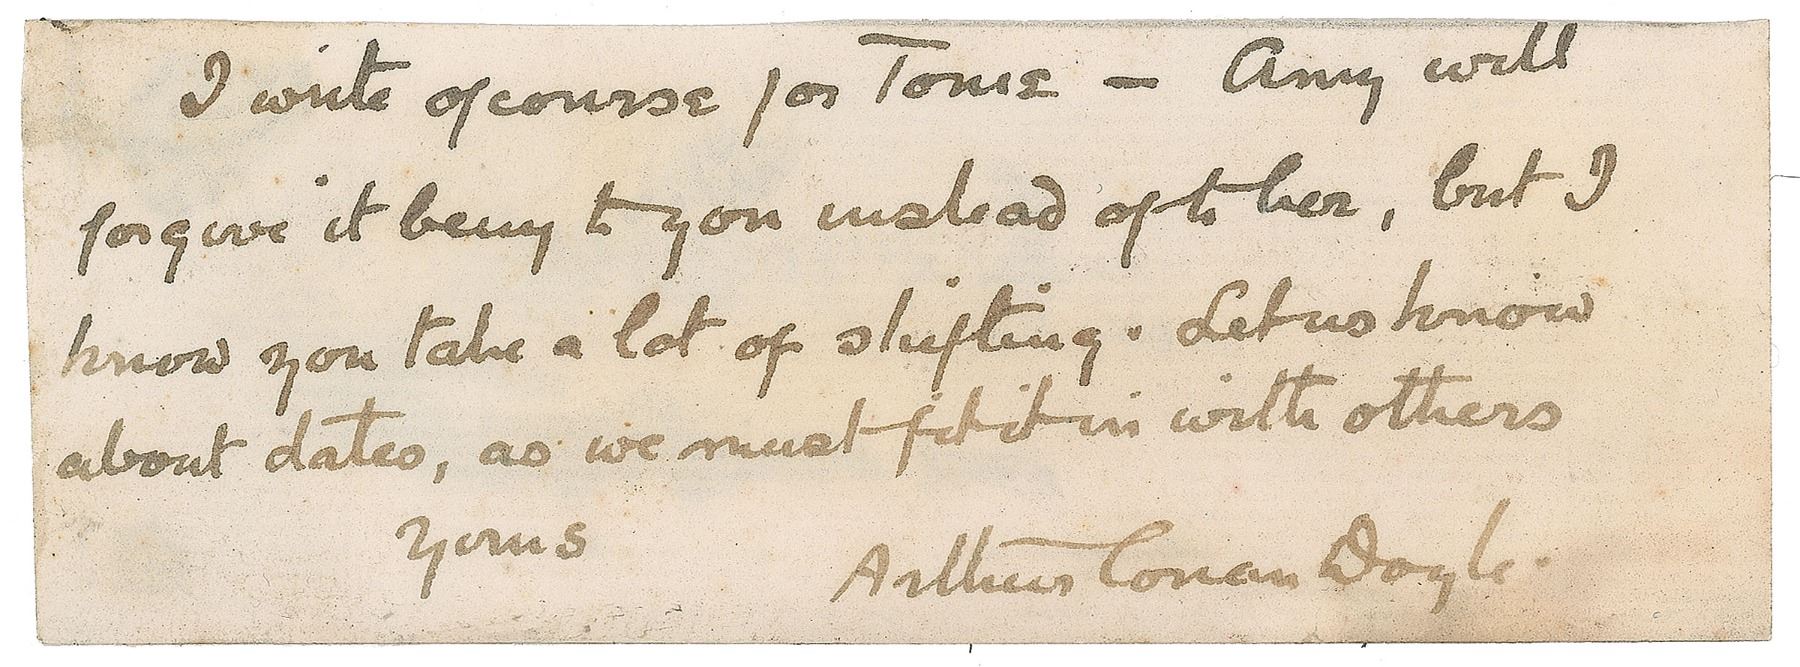 I write of course for Touie — Amy will
forgive it being to you instead of to her, but I
know you take a lot of shifting. Let us know
about dates, as we must fit it in with others
Yours
Arthur Conan Doyle.